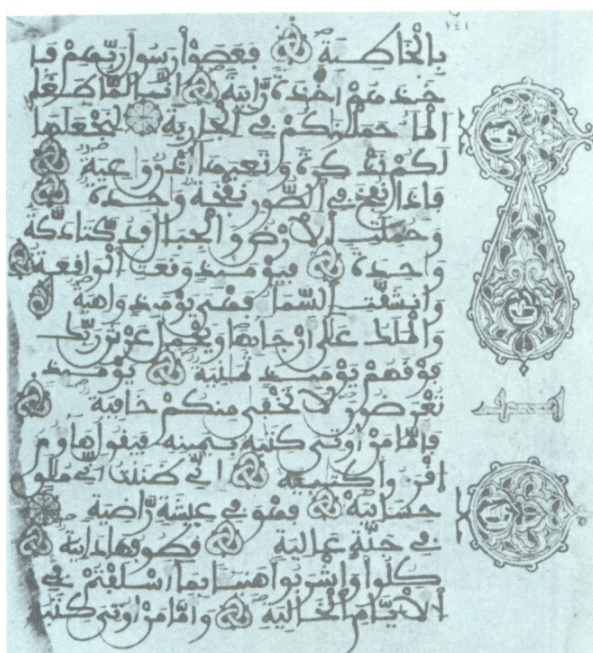 بِالْخَاطِئَةِ فَعَصَوْا رَسُولَ رَبِّهِمْ فَأَ
خَذَهُمْ أَخْذَةً رَّابِيَةً إِنَّا لَمَّا طَغَا
الْمَاءُ حَمَلْنَٰكُمْ فِي الْجَارِيَةِ لِنَجْعَلَهَا
لَكُمْ تَذْكِرَةً وَتَعِيَهَا أُذُنٌ وَٰعِيَةٌ
فَإِذَا نُفِخَ فِي الصُّورِ نَفْخَةٌ وَٰحِدَةٌ
وَحُمِلَتِ الْأَرْضُ وَالْجِبَالُ فَدُكَّتَا دَكَّةً
وَٰحِدَةً فَيَوْمَئِذٍ وَقَعَتِ الْوَاقِعَةُ
وَانشَقَّتِ السَّمَاءُ فَهِيَ يَوْمَئِذٍ وَاهِيَةٌ
وَالْمَلَكُ عَلَىٰ أَرْجَائِهَا وَيَحْمِلُ عَرْشَ رَبِّكَ
فَوْقَهُمْ يَوْمَئِذٍ ثَمَٰنِيَةٌ يَوْمَئِذٍ
تُعْرَضُونَ لَا تَخْفَىٰ مِنكُمْ خَافِيَةٌ
فَأَمَّا مَنْ أُوتِيَ كِتَٰبَهُ بِيَمِينِهِ فَيَقُولُ هَاؤُمُ
اقْرَءُوا كِتَٰبِيَهْ إِنِّي ظَنَنتُ أَنِّي مُلَٰقٍ
حِسَابِيَهْ فَهُوَ فِي عِيشَةٍ رَّاضِيَةٍ
فِي جَنَّةٍ عَالِيَةٍ قُطُوفُهَا دَانِيَةٌ
كُلُوا وَاشْرَبُوا هَنِيئًا بِمَا أَسْلَفْتُمْ فِي
الْأَيَّامِ الْخَالِيَةِ وَأَمَّا مَنْ أُوتِيَ كِتَٰبَهُ